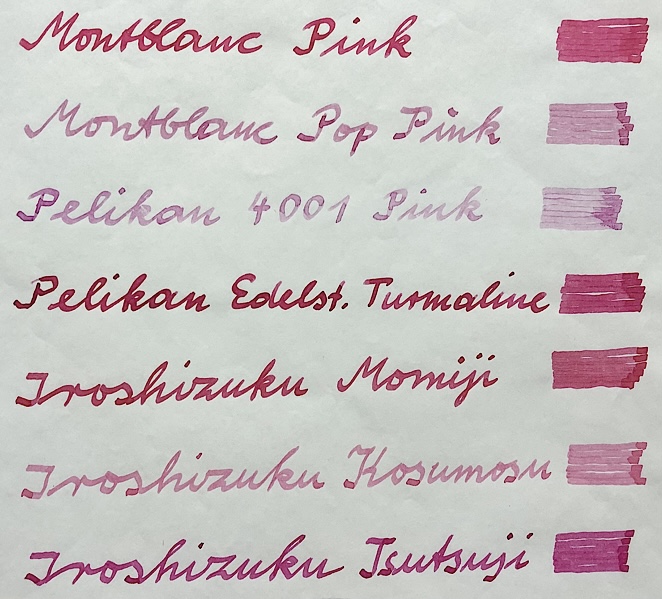 Montblanc Pink
Montblanc Pop Pink
Pelikan 4001 Pink
Pelikan Edelst. Turmaline
Iroshizuku Momiji
Iroshizuku Kosumosu
Iroshizuku Tsutsuji